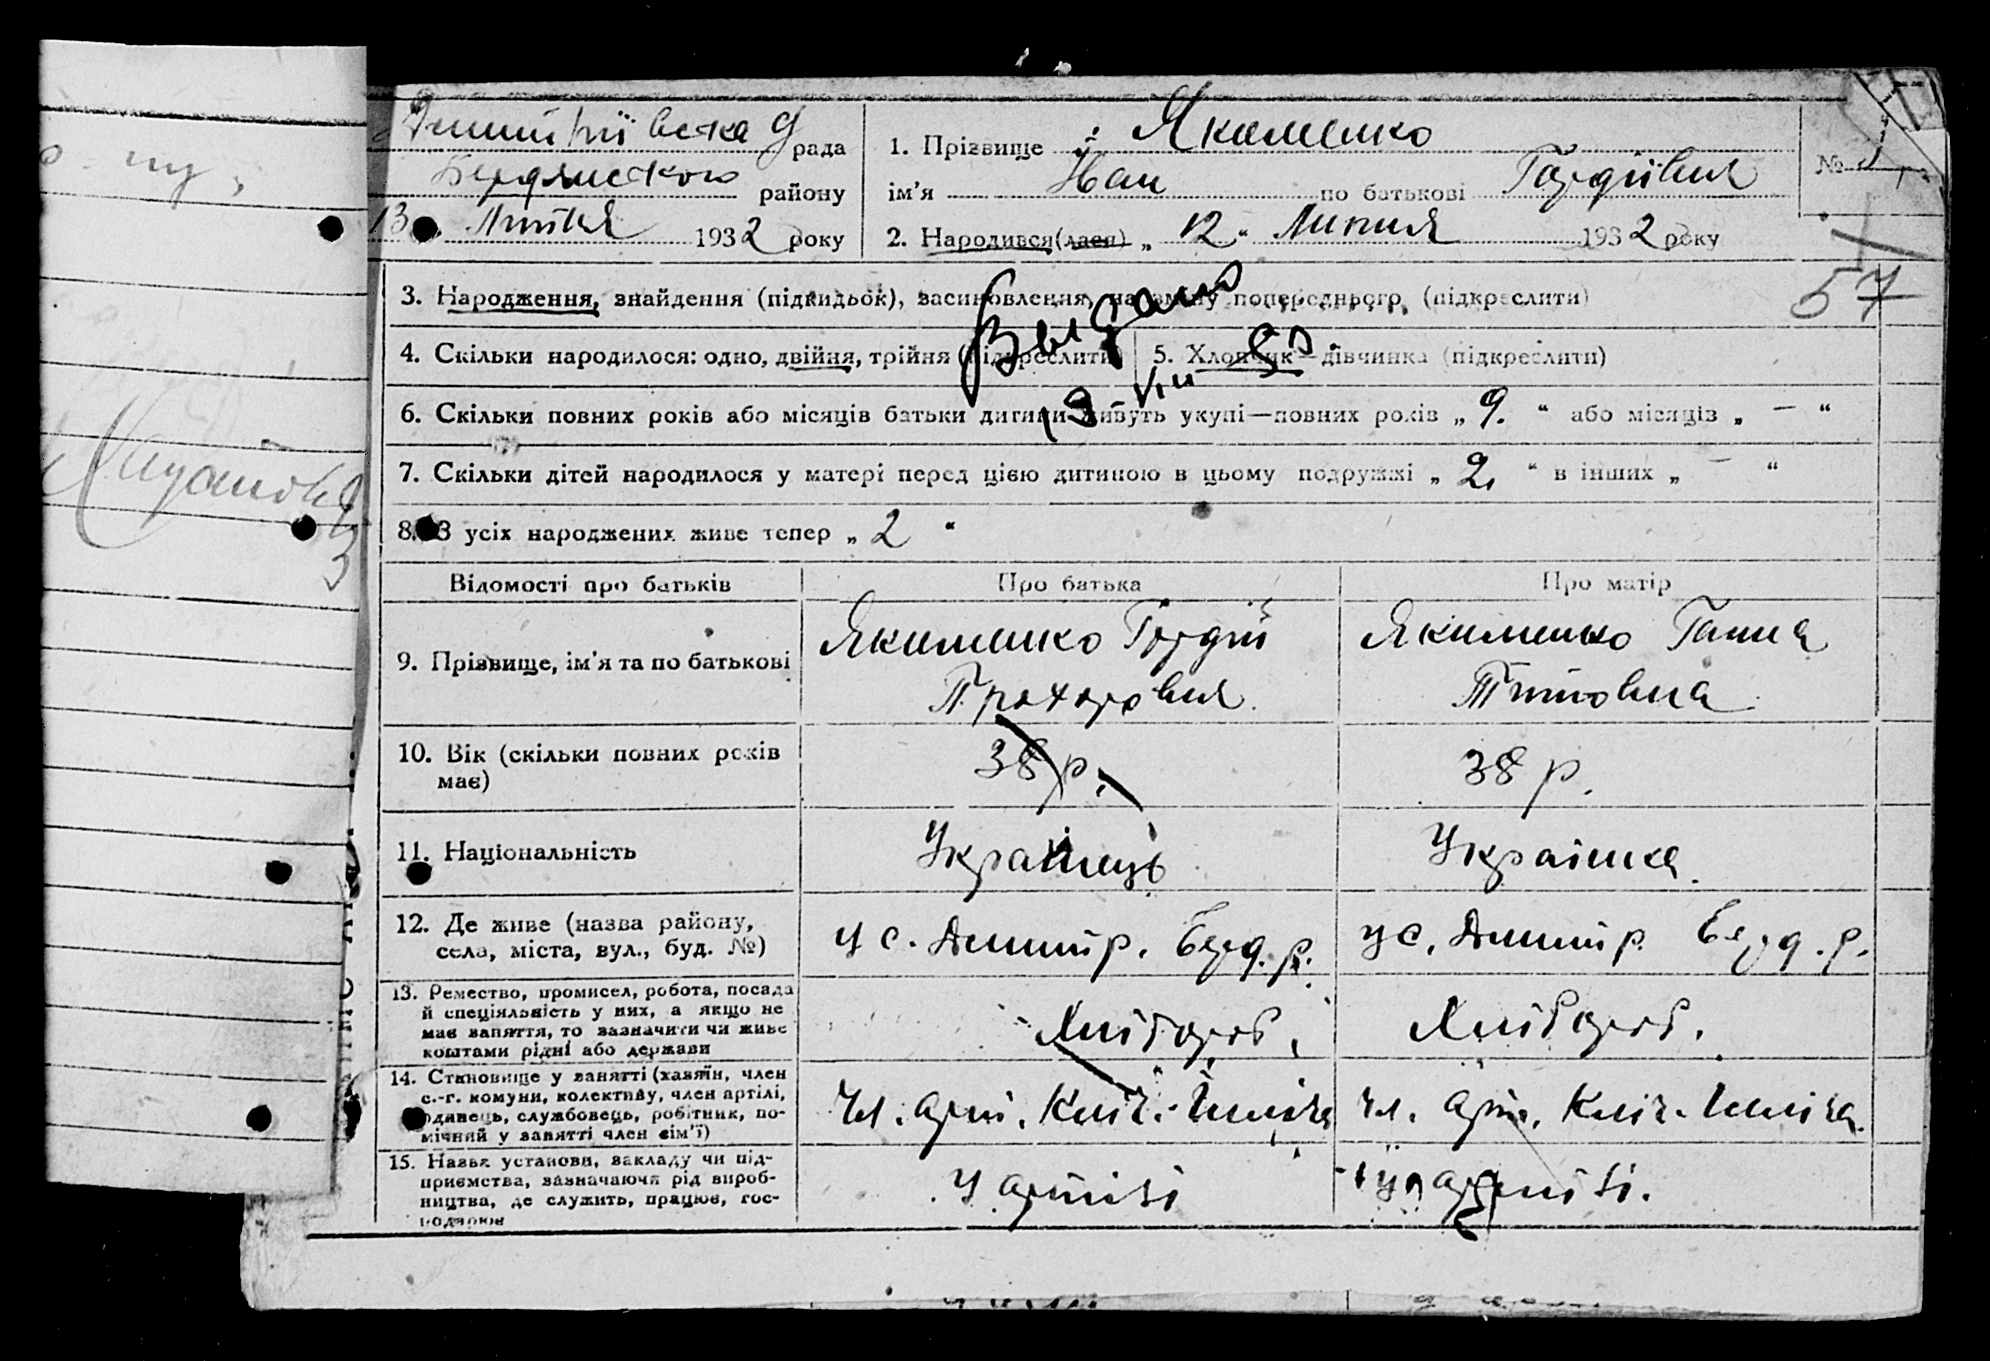 Дмитріївська рада
Бердянського району
13 Липня 1932 року
1. Прізвище Якименко
ім'я Іван по батькові Гордійович
2. Народився (лася) „ 12 “ Липня 1932 року
№
57
3. Народження, знайдення (підкидьок), засиновлення, на зміну попереднього (підкреслити)
Выдано
4. Скільки народилося: одно, двійня, трійня (підкреслити)
5. Хлопчик—дівчинка (підкреслити)
19 VIII 50.
6. Скільки повних років або місяців батьки дитини живуть укупі—повних років „ 9. “ або місяців „ — “
7. Скільки дітей народилося у матері перед цією дитиною в цьому подружжі „ 2, “ в інших „ — “
8. З усіх народжених живе тепер „ 2 “
Відомості про батьків
Про батька
Про матір
9. Прізвище, ім'я та по батькові
Якименко Гордій
Прохорович
Якименко Ганна
Титовна
10. Вік (скільки повних років
має)
38 р.
38 р.
11. Національність
Українець
Українка
12. Де живе (назва району,
села, міста, вул., буд. №)
у с. Дмитр. Берд. р.
у с. Дмитр. Берд. р.
13. Ремество, промисел, робота, посада
й спеціяльність у них, а якщо не
має заняття, то зазначити чи живе
коштами рідні або держави
Хлібороб.
Хлібороб.
14. Становище у занятті (хазяїн, член
с.-г. комуни, колективу, член артілі,
одинець, службовець, робітник, по-
мічний у занятті член сім'ї)
Чл. арт. Кліч. Ілліча
Чл. арт. Кліч. Ілліча.
15. Назва установи, закладу чи під-
приємства, зазначаючи рід вироб-
ництва, де служить, працює, гос-
подарює
У артілі
у артілі.